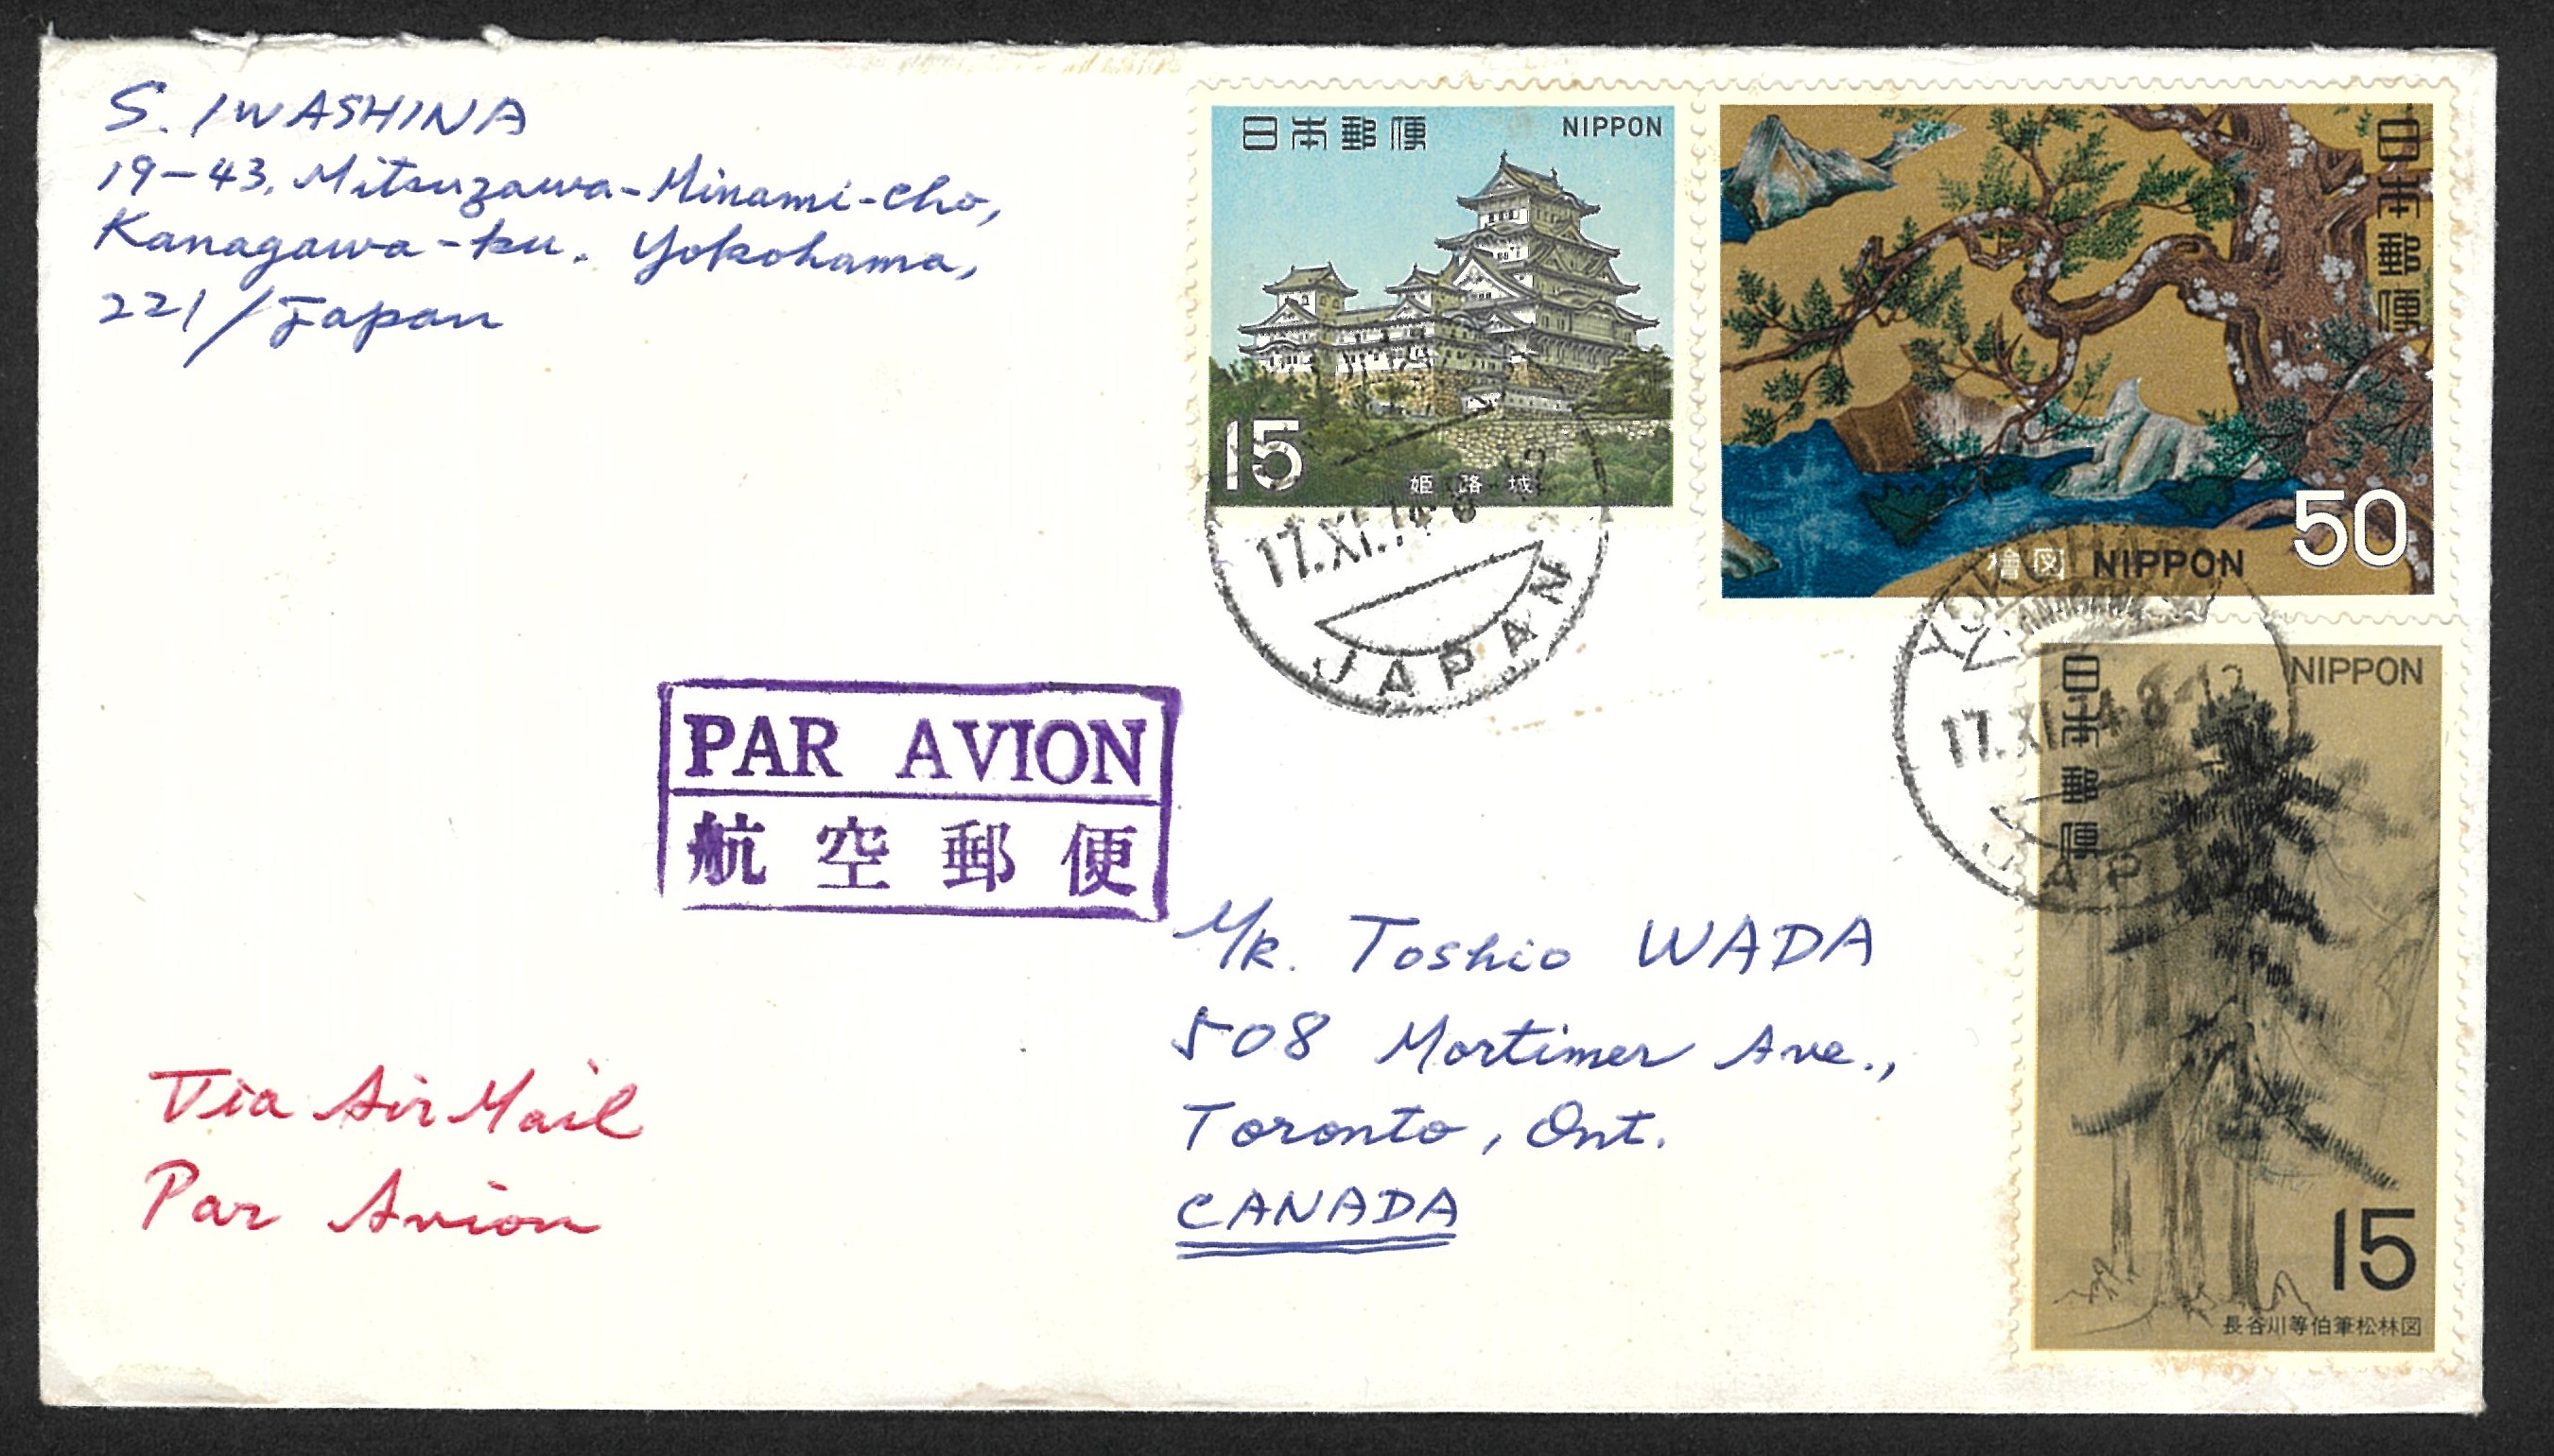 S. IWASHINA
19-43, Mitsuzawa-Minami-cho,
Kanagawa-ku. Yokohama,
221/Japan
日本郵便 NIPPON
15
姫路城
日本郵便
50
檜図 NIPPON
17.XI.74
JAPAN
YOKOHAMA
17.XI.74 8-12
JAP
日本郵便 NIPPON
15
長谷川等伯筆松林図
PAR AVION
航空郵便
Mr. Toshio WADA
508 Mortimer Ave.,
Toronto, Ont.
CANADA
Via Air Mail
Par Avion